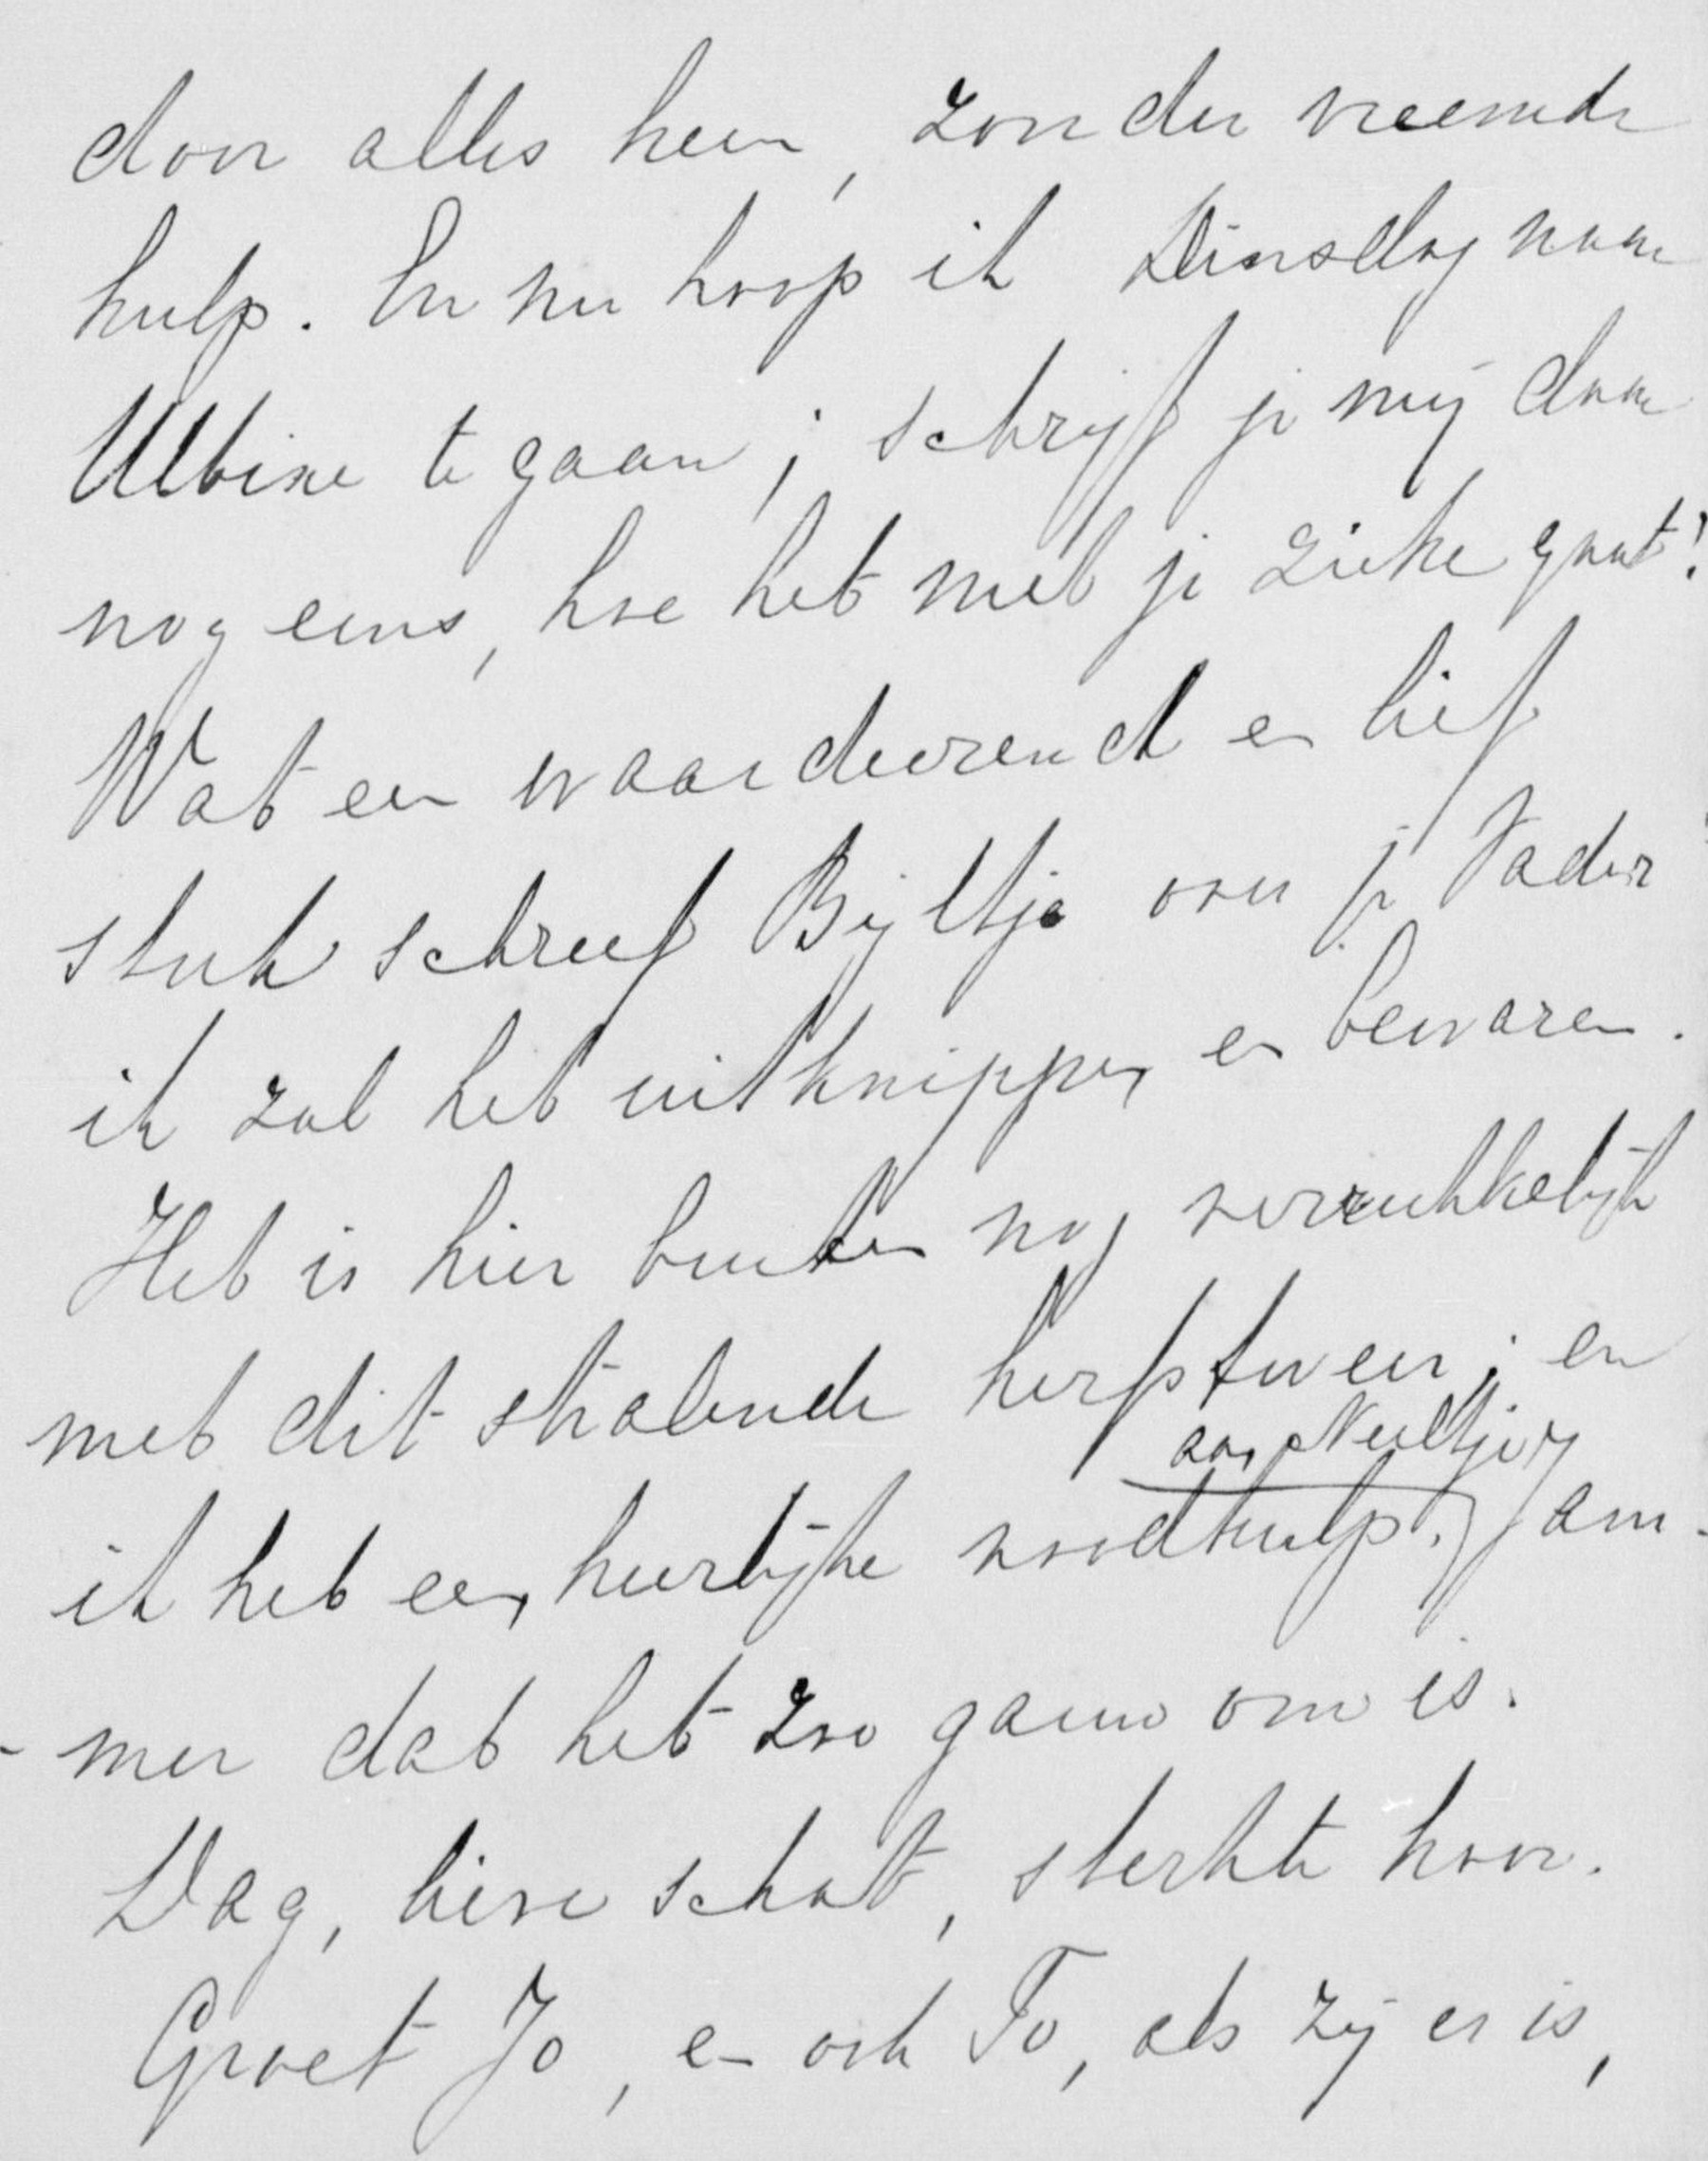 door alles heen, zonder vreemde
hulp. En nu hoop ik Dinsdag naar
Albine te gaan; schrijf je mij daar
nog eens, hoe het met je zieke gaat!
Wat een waardeerend en lief
stuk schreef Bijltje over je Vader
ik zal het uitknippen en bewaren.
Het is hier buiten nog verrukkelijk
met dit stralende herfstweer; en
aan Neeltje
ik heb een heerlijke noodhulp. Jam-
-mer dat het zoo gauw om is.
Dag, lieve schat, sterkte hoor.
Groet Jo, en ook To, als zij er is,